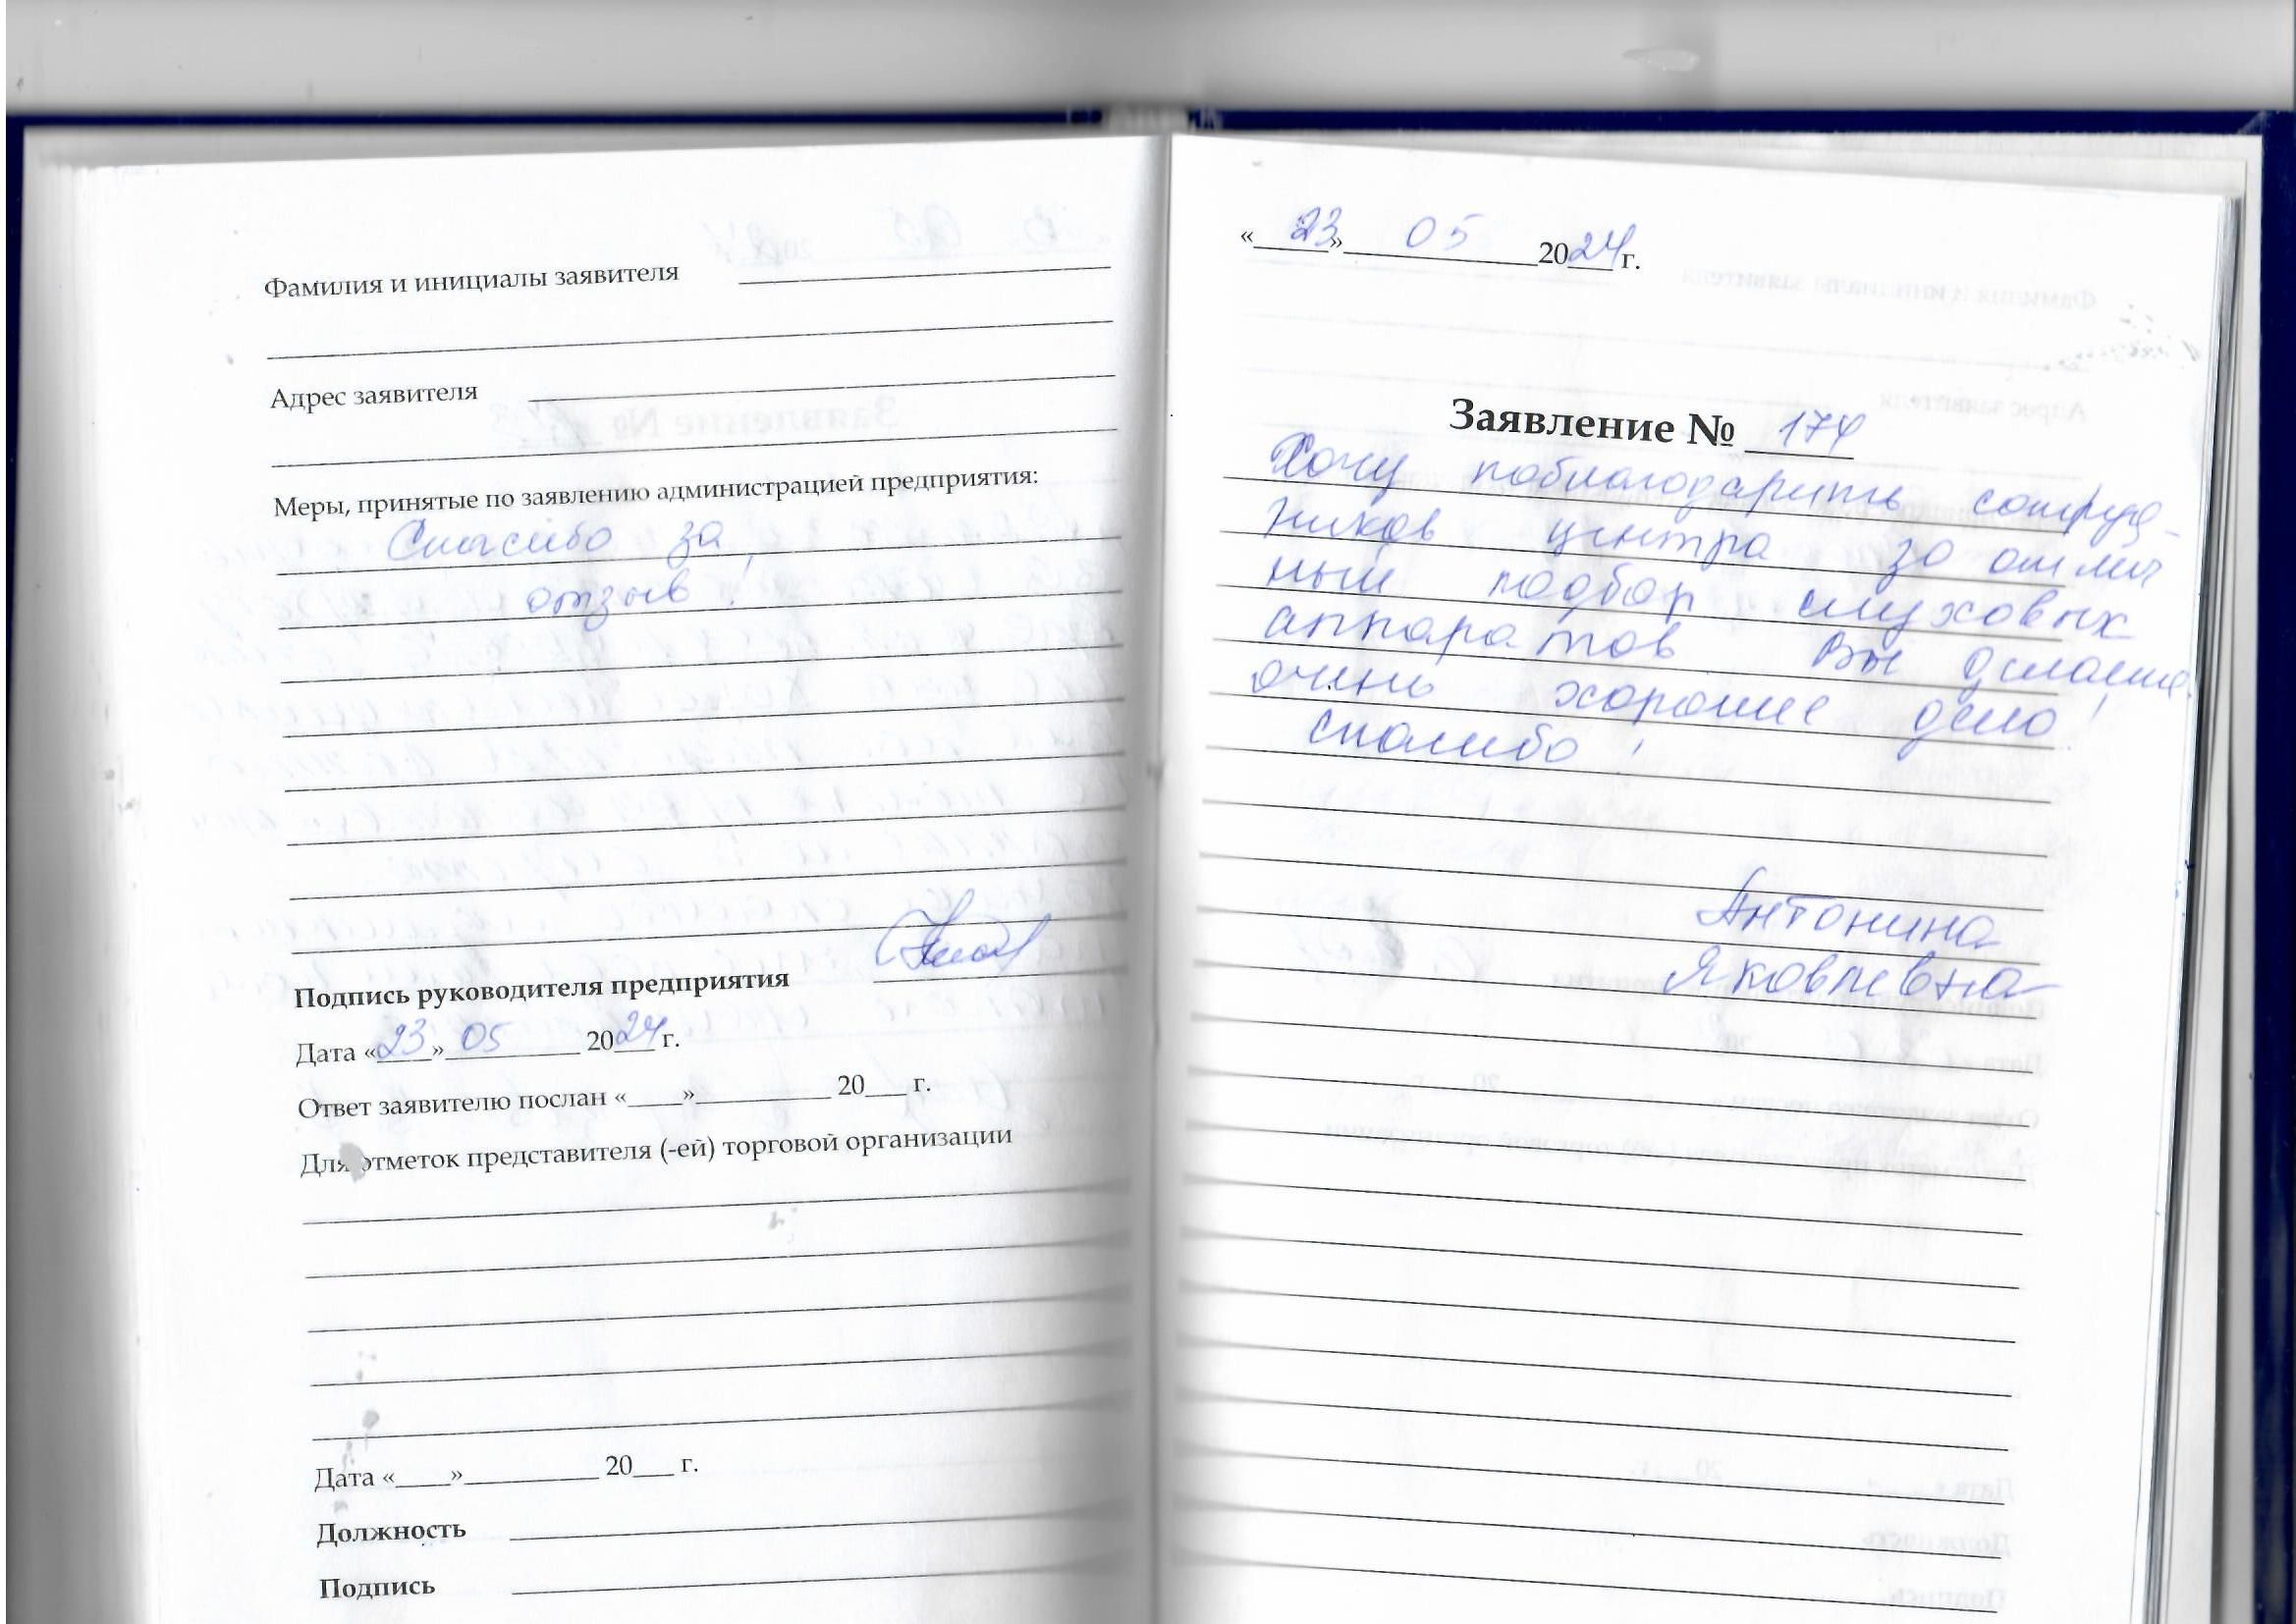 Фамилия и инициалы заявителя
Адрес заявителя
Меры, принятые по заявлению администрацией предприятия:
Спасибо за
отзыв!
Подпись руководителя предприятия
Дата «23» 05 2024 г.
Ответ заявителю послан «____»__________ 20___ г.
Для отметок представителя (-ей) торговой организации
Дата «____»__________ 20___ г.
Должность
Подпись
«23» 05 2024 г.
Заявление № 174
Хочу поблагодарить сотруд-
ников центра за отлич
ный подбор слуховых
аппаратов Вы делаете
очень хорошее дело!
спасибо!
Антонина
Яковлевна